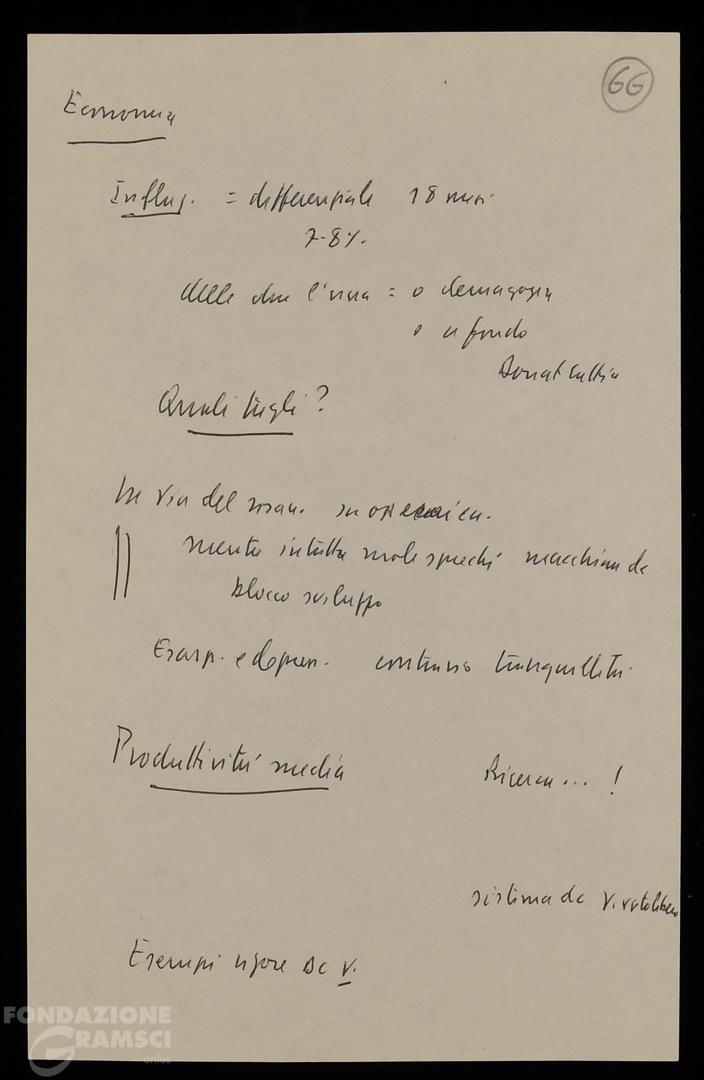 66
Economia
Inflaz. = differenziale 18 mesi
7-8%.
delle due l'una = o demagogia
o a fondo
Donat Cattin
Quali tagli?
In via del risan.
mente intatta mole sprechi macchina dc
blocco sviluppo
Esasp. e depren. continuo tranquillità.
Produttività media
Ricerca... !
sistema dc
Esempi rigore Dc V.
FONDAZIONE
GRAMSCI
onlus